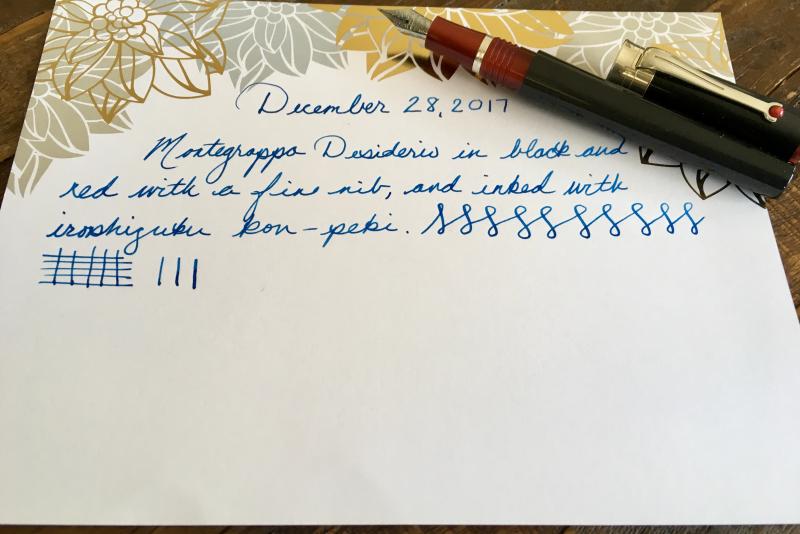 December 28, 2017
Montegrappa Desiderio in black and
red with a fine nib, and inked with
iroshizuku kon-peki.